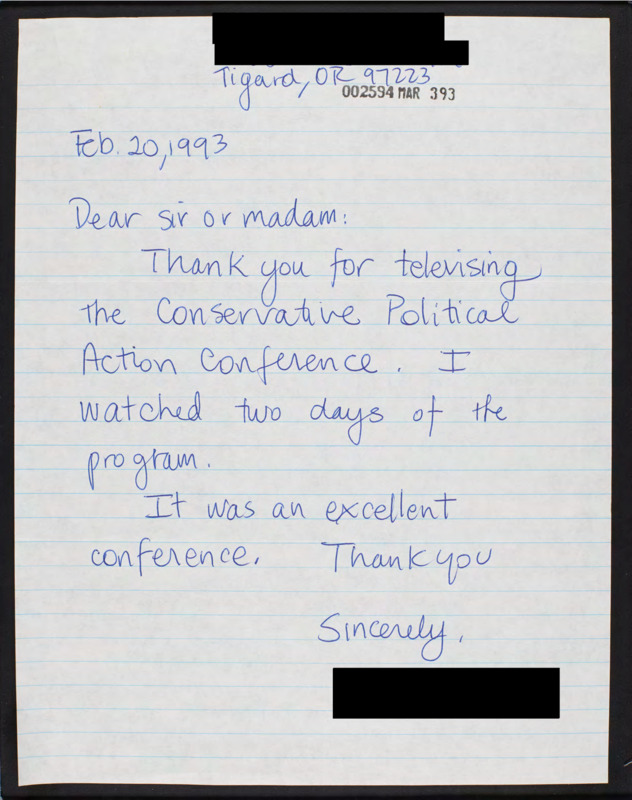 Tigard, OR 97223
002594 MAR 393
Feb. 20, 1993
Dear sir or madam:
Thank you for televising
the Conservative Political
Action Conference. I
watched two days of the
program.
It was an excellent
conference. Thank you
Sincerely,